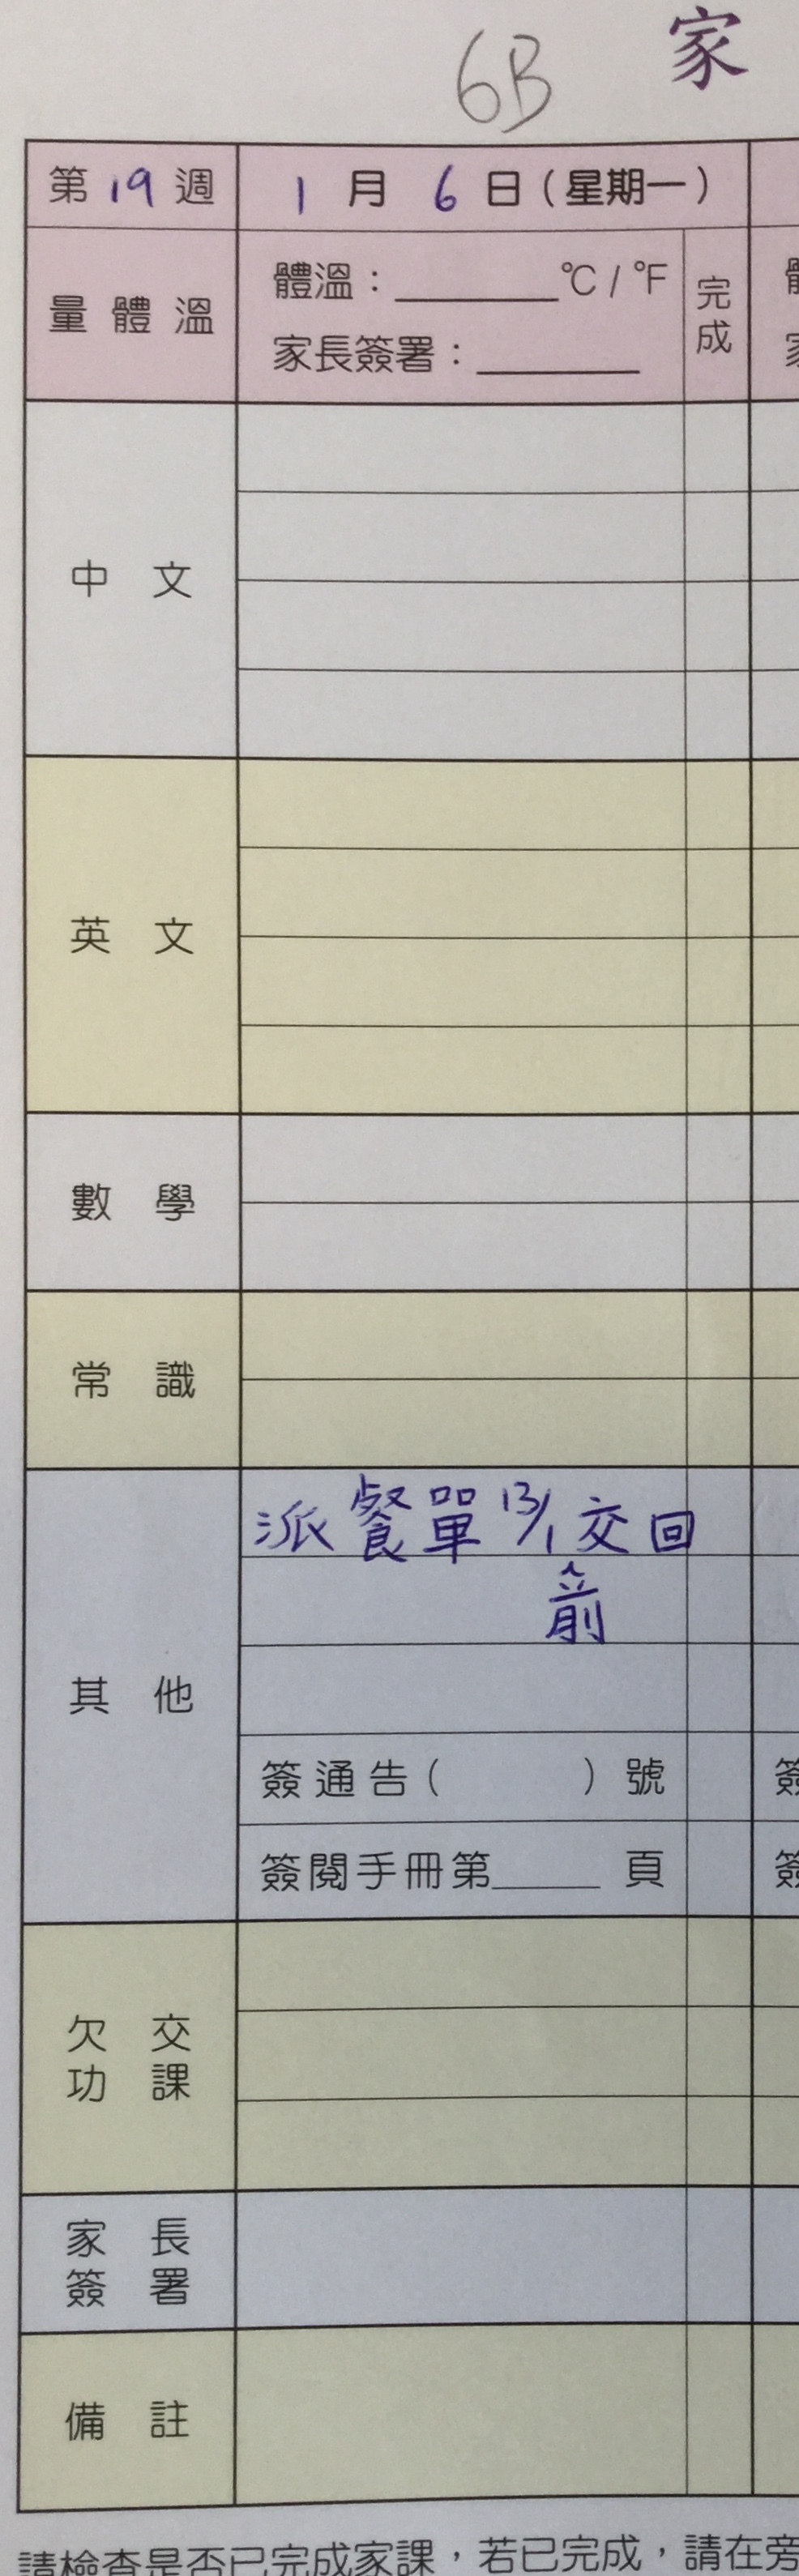 6B 家
第19週 1月6日(星期一)
量體溫 體溫：______°C / °F 完成
家長簽署：______
中文
英文
數學
常識
其他 派餐單13/1交回
前
簽通告( )號
簽閱手冊第_____頁
欠交
功課
家長
簽署
備註
請檢查是否已完成家課，若已完成，請在旁